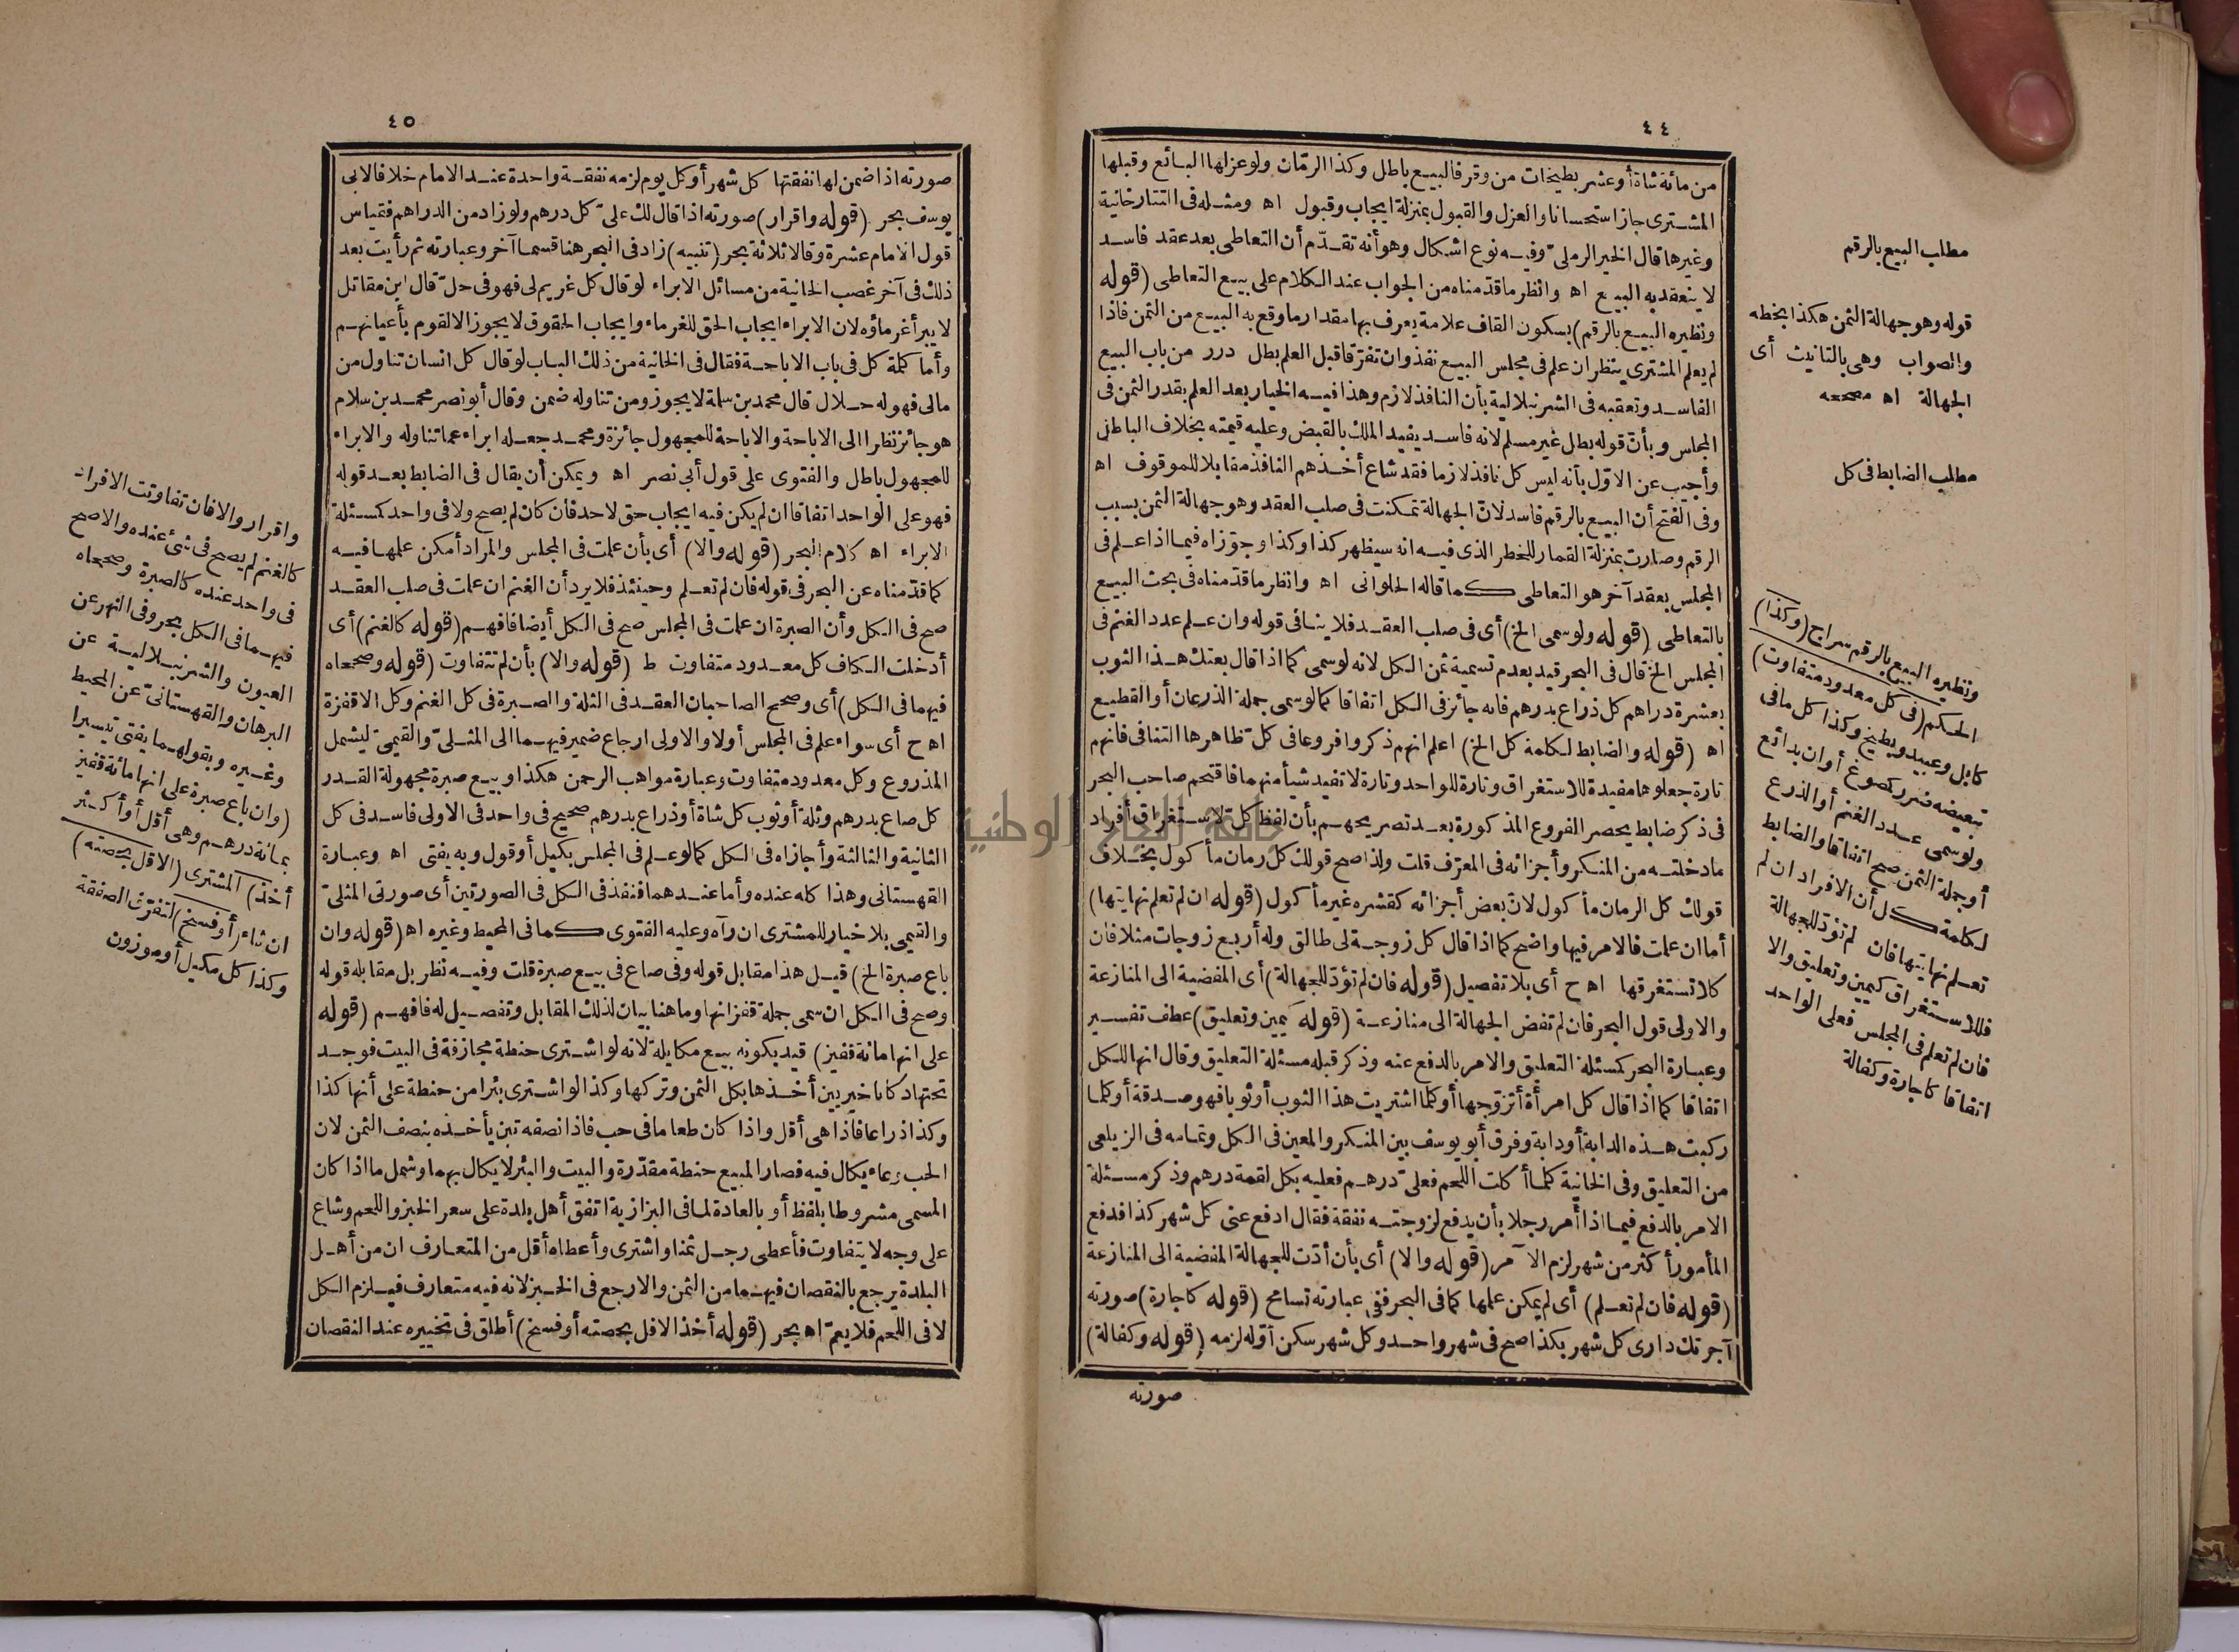 ٤٤
من مائة شاة أو عشر بطيخات من وقر فالبيع باطل وكذا الرمّان ولو عزلها البائع وقبلها
المشترى جاز استحسانا والعزل والقبول بمنزلة ايجاب وقبول اه ومثله فى التتارخانية
وغيرها قال الخير الرملىّ وفيه نوع اشكال وهو أنه تقدّم أن التعاطى بعد عقد فاسد
لا ينعقد به البيع اه وانظر ما قدّمناه من الجواب عند الكلام على بيع التعاطى (قوله
ونظيره البيع بالرقم) بسكون القاف علامة يعرف بها مقدار ما وقع به البيع من الثمن فاذا
لم يعلم المشترى ينظر ان علم فى مجلس البيع نفذ وان تفرّقا قبل العلم بطل درر من باب البيع
الفاسد وتعقبه فى الشرنبلالية بأن النافذ لازم وهذا فيه الخيار بعد العلم بقدر الثمن فى
المجلس وبأنّ قوله بطل غير مسلم لانه فاسد يفيد الملك بالقبض وعليه قيمته بخلاف الباطل
وأجيب عن الاوّل بأنه ليس كل نافذ لازما فقد شاع أخذهم النافذ مقابلا للموقوف اه
وفى الفتح أن البيع بالرقم فاسد لانّ الجهالة تمكنت فى صلب العقد وهو جهالة الثمن بسبب
الرقم وصارت بمنزلة القمار للخطر الذى فيه انه سيظهر كذا وكذا وجوّزاه فيما اذا علم فى
المجلس بعقد آخر هو التعاطى كما قاله الحلوانى اه وانظر ما قدّمناه فى بحث البيع
بالتعاطى (قوله ولو سمى الخ) أى فى صلب العقد فلا ينافى قوله وان علم عدد الغنم فى
المجلس الخ قال فى البحر قيد بعدم تسمية ثمن الكل لانه لو سمى كما اذا قال بعتك هذا الثوب
بعشرة دراهم كل ذراع بدرهم فانه جائز فى الكل اتفاقا كما لو سمى جملة الذرعان أو القطيع
اه (قوله والضابط لكلمة كل الخ) اعلم انهم ذكروا فروعا فى كلّ ظاهرها التنافى فانهم
تارة جعلوها مفيدة للاستغراق وتارة للواحد وتارة لا تفيد شيأ منهما فاقتحم صاحب البحر
فى ذكر ضابط يحصر الفروع المذكورة بعد تصريحهم بأن لفظ كل لاستغراق أفراد
ما دخلته من المنكر وأجزائه فى المعرّف قلت ولذا صح قولك كل رمان مأكول بخلاف
قولك كل الرمان مأكول لانّ بعض أجزائه كقشره غير مأكول (قوله ان لم تعلم نهايتها)
أما ان علمت فالامر فيها واضح كما اذا قال كل زوجة لى طالق وله أربع زوجات مثلا فان
كلا تستغرقها اه ح أى بلا تفصيل (قوله فان لم تؤدّ للجهالة) أى المفضية الى المنازعة
والاولى قول البحر فان لم تفض الجهالة الى منازعة (قوله كيمين وتعليق) عطف تفسير
وعبارة البحر كمسئلة التعليق والامر بالدفع عنه وذكر قبله مسئلة التعليق وقال انها للكل
اتفاقا كما اذا قال كل امرأة أتزوّجها أو كلما اشتريت هذا الثوب أو ثوبا فهو صدقة أو كلما
ركبت هذه الدابة أو دابة وفرق أبو يوسف بين المنكر والمعين فى الكل وتمامه فى الزيلعى
من التعليق وفى الخانية كلما أكلت اللحم فعلىّ درهم فعليه بكل لقمة درهم وذكر مسئلة
الامر بالدفع فيما اذا أمر رجلا بأن يدفع لزوجته نفقة فقال ادفع عنى كل شهر كذا فدفع
المأمور أكثر من شهر لزم الآمر (قوله والا) أى بأن أدّت للجهالة المفضية الى المنازعة
(قوله فان لم تعلم) أى لم يمكن علمها كما فى البحر ففى عبارته تسامح (قوله كاجارة) صورته
آجرتك دارى كل شهر بكذا صح فى شهر واحد وكل شهر سكن أوّله لزمه (قوله وكفالة)
صورته
مطلب البيع بالرقم
قوله وهو جهالة الثمن هكذا بخطه
والصواب وهى بالتانيث أى
الجهالة اه مصححه
مطلب الضابط فى كل
ونظيره البيع بالرقم سراج (وكذا)
الحكم (فى كل معدود متفاوت)
كابل وعبيد وبطيخ وكذا كل ما فى
تبعيضه ضرر كمصوغ أوان بدائع
ولو سمى عدد الغنم أو الذرع
أو جملة الثمن صح اتفاقا والضابط
لكلمة كل أن الافراد ان لم
تعلم نهايتها فان لم تؤدّ للجهالة
فللاستغراق كيمين وتعليق والا
فان لم تعلم فى المجلس فعلى الواحد
اتفاقا كاجارة وكفالة
٤٥
صورته اذا ضمن لها نفقتها كل شهر أو كل يوم لزمه نفقة واحدة عند الامام خلافا لابى
يوسف بحر (قوله واقرار) صورته اذا قال لك علىّ كل درهم ولو زاد من الدراهم فقياس
قول الامام عشرة وقالا ثلاثة بحر (تنبيه) زاد فى البحر هنا قسما آخر وعبارته ثم رأيت بعد
ذلك فى آخر غصب الخانية من مسائل الابراء لو قال كل غريم لى فهو فى حلّ قال ابن مقاتل
لا يبرأ غرماؤه لان الابراء ايجاب الحق للغرماء وايجاب الحقوق لا يجوز الا لقوم بأعيانهم
وأما كلمة كل فى باب الاباحة فقال فى الخانية من ذلك الباب لو قال كل انسان تناول من
مالى فهو له حلال قال محمد بن سلمة لا يجوز ومن تناوله ضمن وقال أبو نصر محمد بن سلام
هو جائز نظرا الى الاباحة والاباحة للمجهول جائزة ومحمد جعله ابراء عما تناوله والابراء
للمجهول باطل والفتوى على قول أبى نصر اه ويمكن أن يقال فى الضابط بعد قوله
فهو على الواحد اتفاقا ان لم يكن فيه ايجاب حق لاحد فان كان لم يصح ولا فى واحد كمسئلة
الابراء اه كلام البحر (قوله والا) أى بأن علمت فى المجلس والمراد أمكن علمها فيه
كما قدّمناه عن البحر فى قوله فان لم تعلم وحينئذ فلا يرد أن الغنم ان علمت فى صلب العقد
صح فى الكل وأن الصبرة ان علمت فى المجلس صح فى الكل أيضا فافهم (قوله كالغنم) أى
أدخلت الكاف كل معدود متفاوت ط (قوله والا) بأن لم تتفاوت (قوله وصححاه
فيهما فى الكل) أى وصحح الصاحبان العقد فى الثلة والصبرة فى كل الغنم وكل الاقفزة
اه ح أى سواء علم فى المجلس أو لا والاولى ارجاع ضمير فيهما الى المثلىّ والقيمىّ ليشمل
المذروع وكل معدود متفاوت وعبارة مواهب الرحمن هكذا وبيع صبرة مجهولة القدر
كل صاع بدرهم وثلة أو ثوب كل شاة أو ذراع بدرهم صحيح فى واحد فى الاولى فاسد فى كل
الثانية والثالثة وأجازاه فى الكل كما لو علم فى المجلس بكيل أو قول وبه يفتى اه وعبارة
القهستانى وهذا كله عنده وأما عندهما فنفذ فى الكل فى الصورتين أى صورتى المثلىّ
والقيمى بلا خيار للمشترى ان رآه وعليه الفتوى كما فى المحيط وغيره اه (قوله وان
باع صبرة الخ) قيل هذا مقابل قوله وفى صاع فى بيع صبرة قلت وفيه نظر بل مقابله قوله
وصح فى الكل ان سمى جملة قفزانها وما هنا بيان لذلك المقابل وتفصيل له فافهم (قوله
على انها مائة قفيز) قيد بكونه بيع مكايلة لانه لو اشترى حنطة مجازفة فى البيت فوجد
تحتها دكانا خير بين أخذها بكل الثمن وتركها وكذا لو اشترى بئرا من حنطة على أنها كذا
وكذا ذراعا فاذا هى أقل واذا كان طعاما فى حب فاذا نصفه تبن يأخذه بنصف الثمن لان
الحب وعاء يكال فيه فصار المبيع حنطة مقدّرة والبيت والبئر لا يكال بهما وشمل ما اذا كان
المسمى مشروطا بلفظ أو بالعادة لما فى البزازية اتفق أهل بلدة على سعر الخبز واللحم وشاع
على وجه لا يتفاوت فأعطى رجل ثمنا واشترى وأعطاه أقل من المتعارف ان من أهل
البلدة يرجع بالنقصان فيهما من الثمن والا رجع فى الخبز لانه فيه متعارف فيلزم الكل
لا فى اللحم فلا يعمّ اه بحر (قوله أخذ الاقل بحصته أو فسخ) أطلق فى تخييره عند النقصان
واقرار والا فان تفاوتت الافراد
كالغنم لم يصح فى شئ عنده والاصح
فى واحد عنده كالصبرة وصححاه
فيهما فى الكل بحر وفى النهر عن
العيون والشرنبلالية عن
البرهان والقهستانىّ عن المحيط
وغيره وبقولهما يفتى تيسيرا
(وان باع صبرة على انها مائة قفيز
بمائة درهم وهى أقل أو أكثر
أخذ) المشترى (الاقل بحصته)
ان شاء (أو فسخ) لتفرّق الصفقة
وكذا كل مكيل أو موزون
جامعة النجاح الوطنية